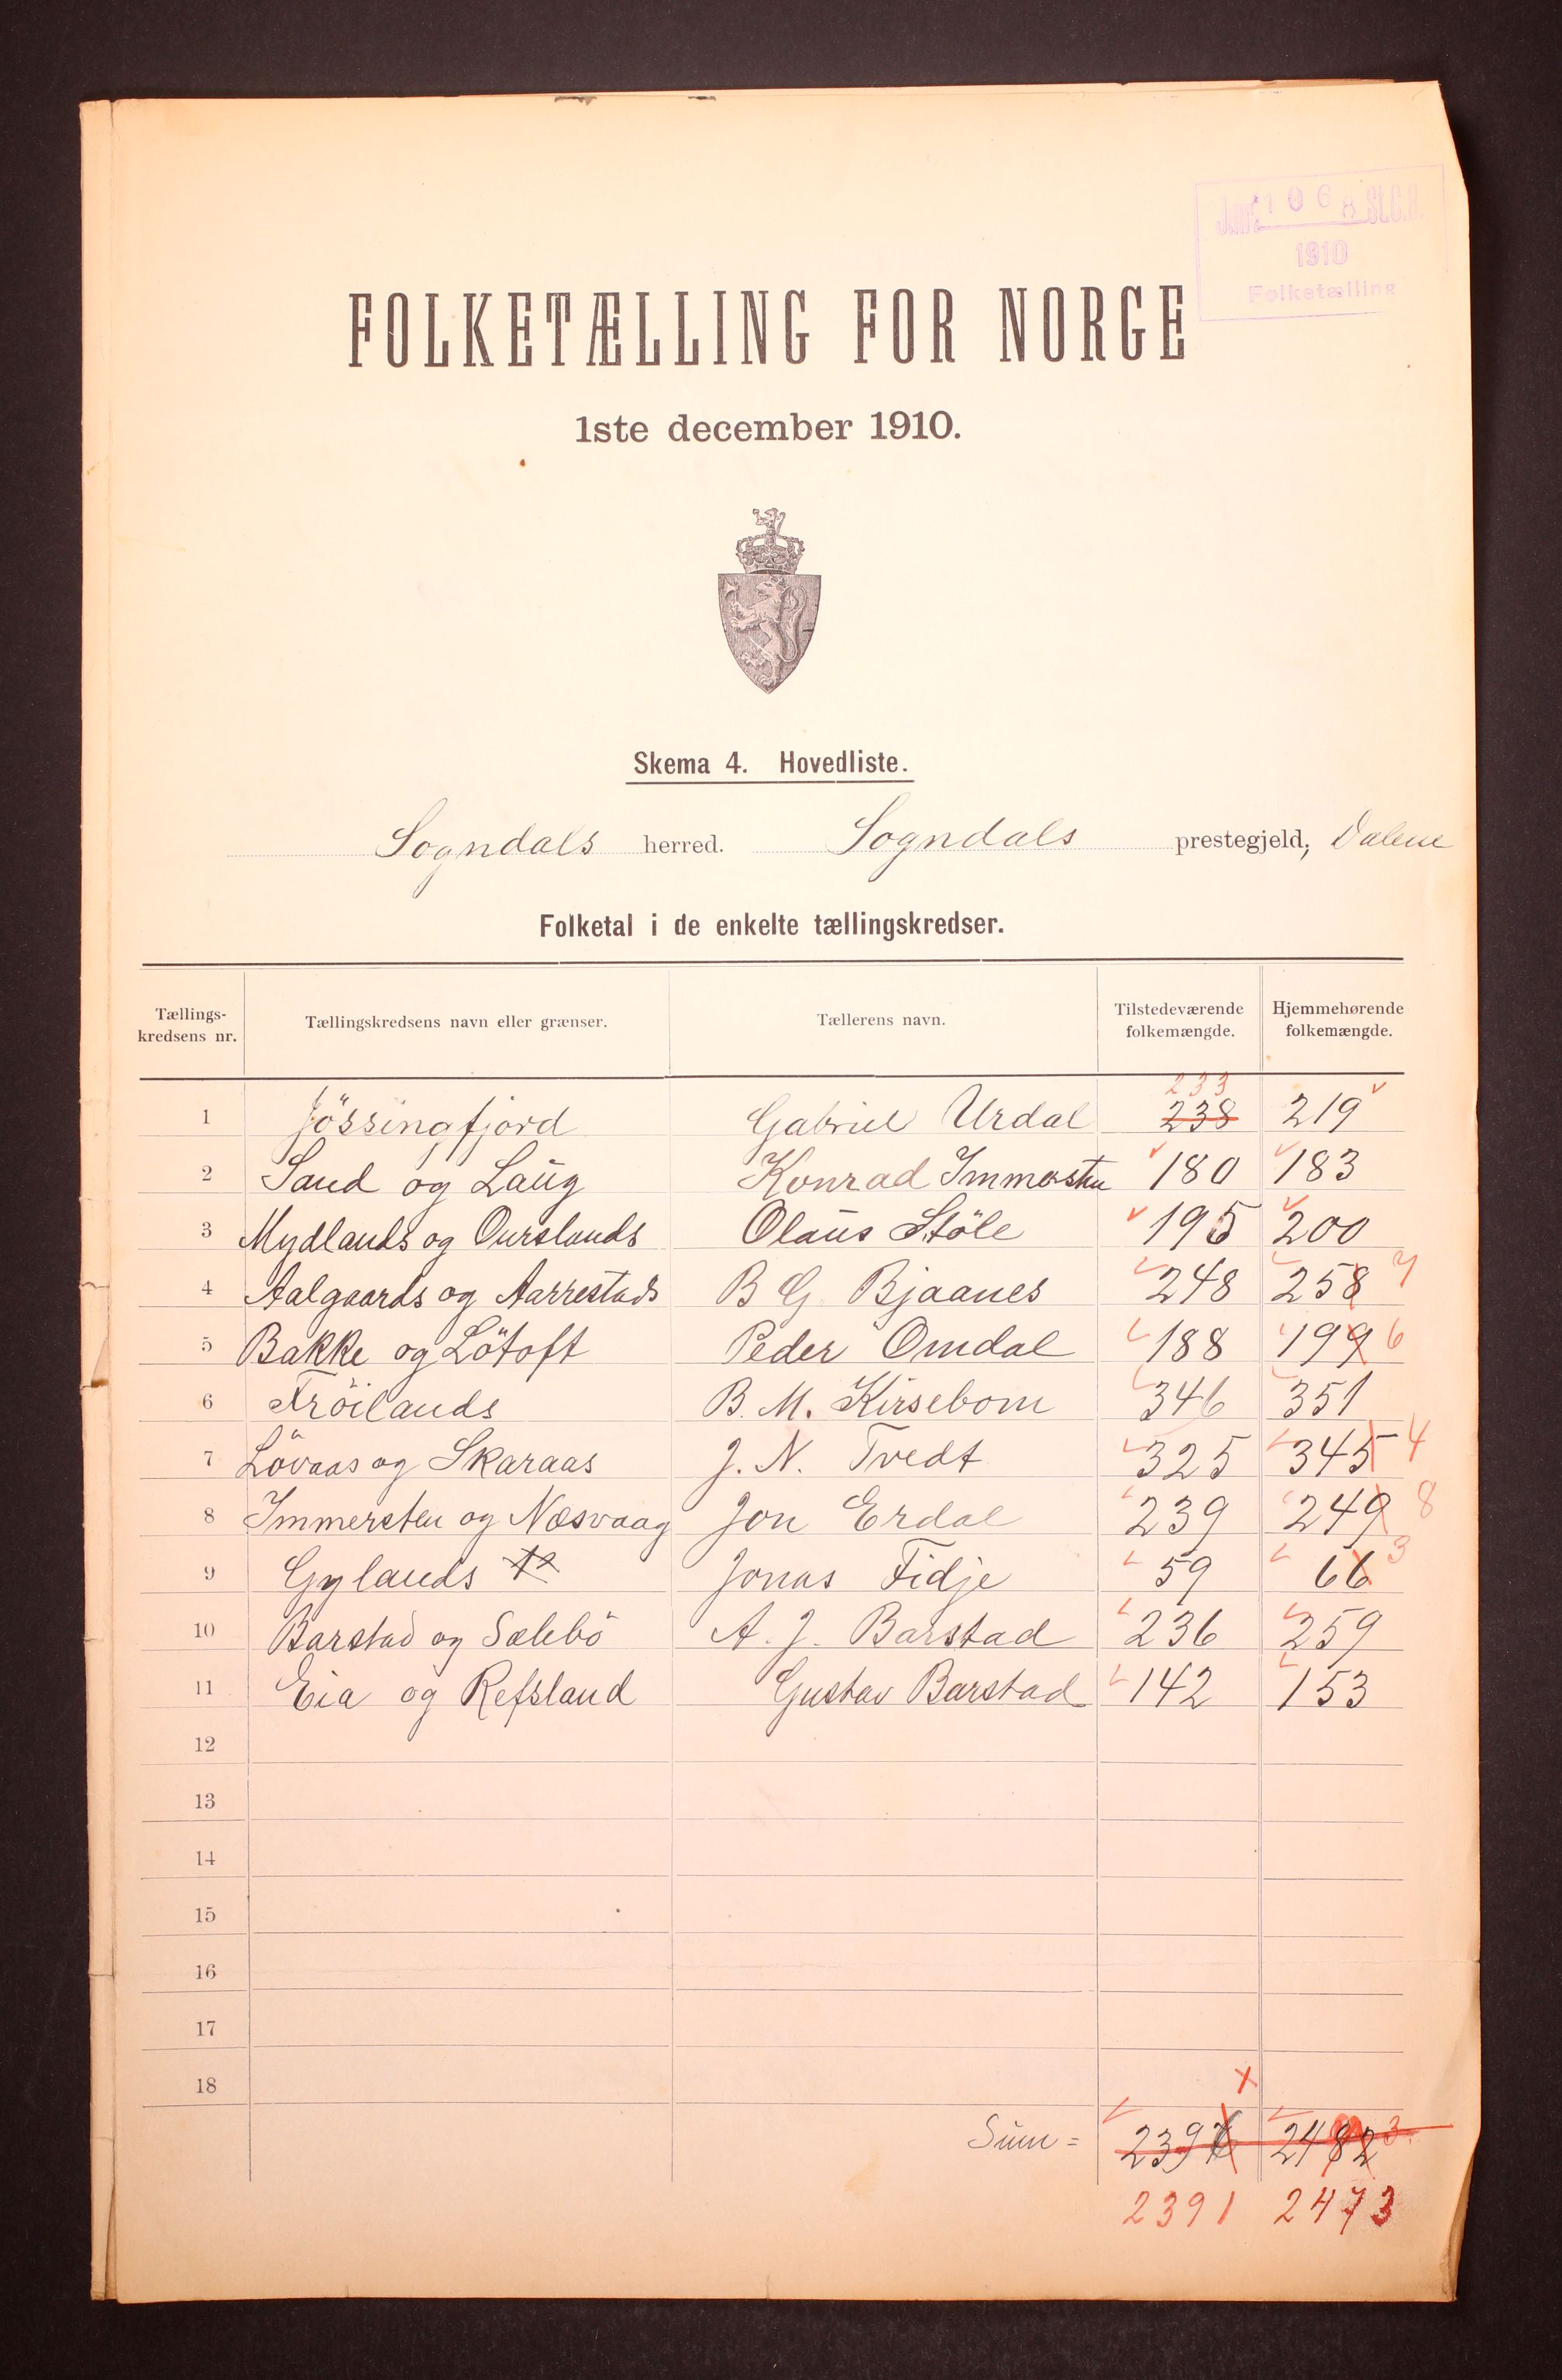 J.nr. 1068 St.C.B.
1910
Folketælling
FOLKETÆLLING FOR NORGE
1ste december 1910.
Skema 4. Hovedliste.
Sogndals herred. Sogndals prestegjeld, Dalene
Folketal i de enkelte tællingskredser.
Tællings-kredsens nr. Tællingskredsens navn eller grænser. Tællerens navn. Tilstedeværende folkemængde. Hjemmehørende folkemængde.
233
1 Jössingfjord Gabriel Urdal 238 219
2 Sand og Laug Konrad Immersten 180 183
3 Mydlands og Ourslands Olaus Stöle 195 200
4 Aalgaards og Aarrestads B G Bjaanes 248 258 7
5 Bakke og Lötoft Peder Omdal 188 199 6
6 Fröilands B. M. Kirsebom 346 351
7 Lövaas og Skaraas J. N. Tvedt 325 345 4
8 Immersten og Næsvaag Jon Erdal 239 249 8
9 Gylands Jonas Fidje 59 66 3
10 Barstad og Sælebö A. J. Barstad 236 259
11 Eia og Refsland Gustav Barstad 142 153
12
13
14
15
16
17
18
x
Sum = 2396 2482 3
2391 2473